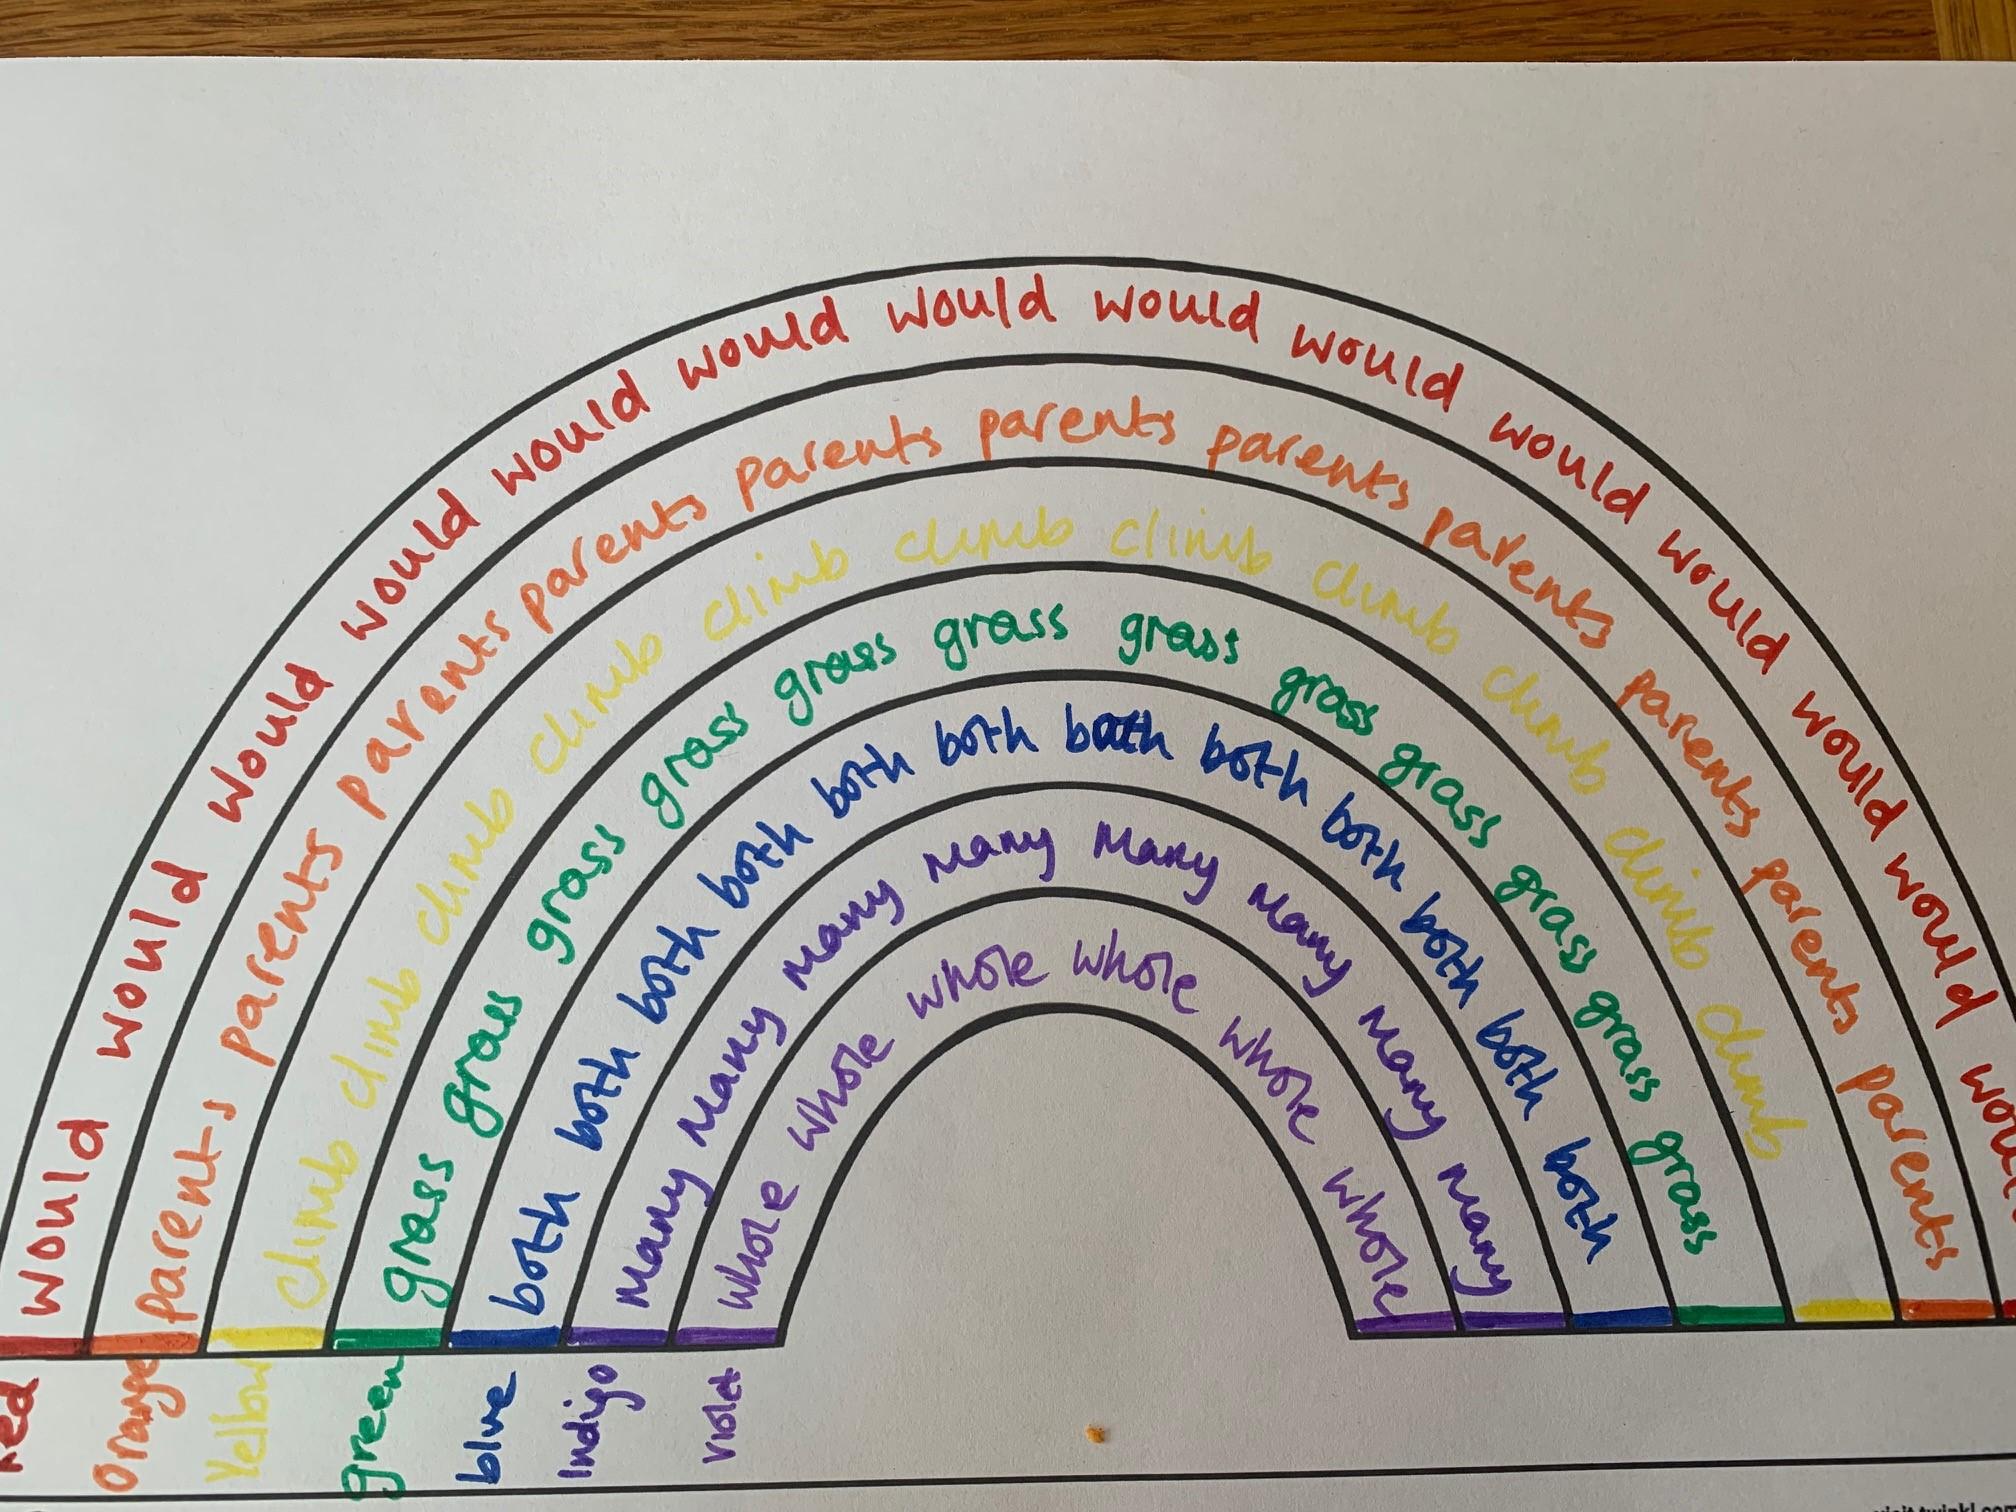 would would would would would would would would would would would would would
parents parents parents parents parents parents parents parents parents parents parents
climb climb climb climb climb climb climb climb climb climb climb
grass grass grass grass grass grass grass grass grass grass grass grass
both both both both both both both both both both both both
many many many many many many many many
whole whole whole whole whole whole
Red Orange Yellow green blue Indigo Violet